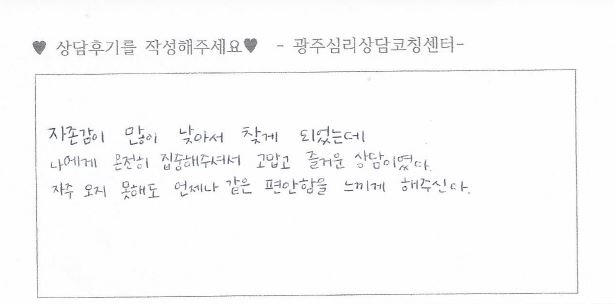 ♥ 상담후기를 작성해주세요♥ - 광주심리상담코칭센터-
자존감이 많이 낮아서 찾게 되었는데
나에게 온전히 집중해주셔서 고맙고 즐거운 상담이였다.
자주 오지 못해도 언제나 같은 편안함을 느끼게 해주신다.